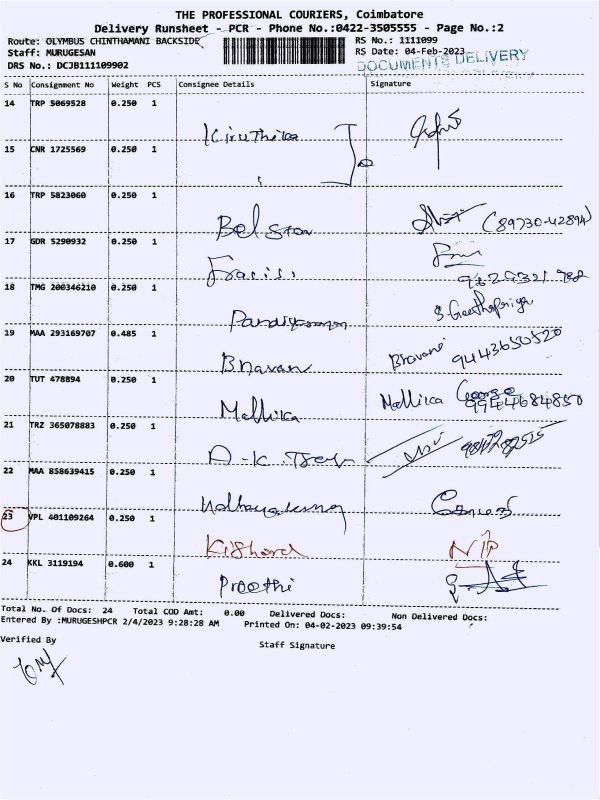 THE PROFESSIONAL COURIERS, Coimbatore
Delivery Runsheet - PCR - Phone No.:0422-3505555 - Page No.:2
Route: OLYMBUS CHINTHAMANI BACKSIDE
RS No.: 1111099
Staff: MURUGESAN
RS Date: 04-Feb-2023
DRS No.: DCJB111109902
DOCUMENTS DELIVERY
S No Consignment No Weight PCS Consignee Details Signature
14 TRP 5069528 0.250 1 Kiruthika
15 CNR 1725569 0.250 1
16 TRP 5823060 0.250 1 Belston (89730-42894)
17 GDR 5290932 0.250 1
18 TMG 200346210 0.250 1 S. Geethapriya
19 MAA 293169707 0.485 1 Bhavan Bravani 9443650520
20 TUT 478894 0.250 1 Mallika Mallika George 9944684850
21 TRZ 365078883 0.250 1
22 MAA 858639415 0.250 1
23 VPL 401109264 0.250 1 Kishore
24 KKL 3119194 0.600 1 Preethi
Total No. Of Docs: 24 Total COD Amt: 0.00 Delivered Docs: Non Delivered Docs:
Entered By :MURUGESHPCR 2/4/2023 9:28:28 AM Printed On: 04-02-2023 09:39:54
Verified By
Staff Signature